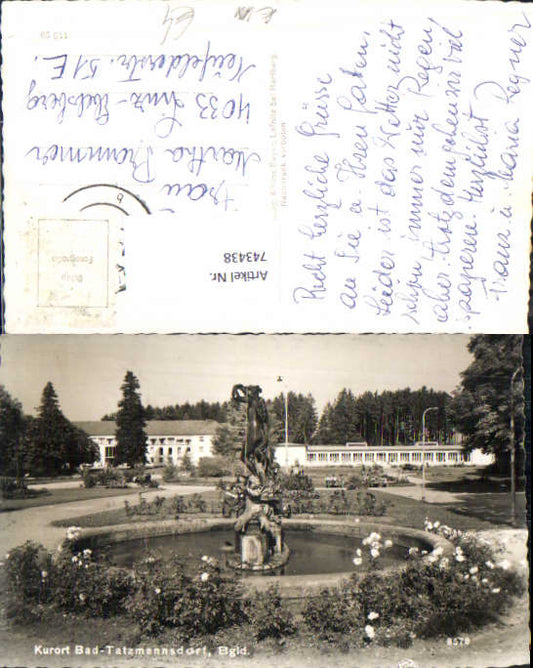 Recht herzliche Grüsse
an Sie u. Ihren Gatten,
Leider ist das Wetter nicht
schön immer nur Regen,
aber trotzdem gehen wir viel
spazieren. Herzlichst
Franz u. Maria Regner
Frau
Martha Brummer
4033 Linz-Ebelsberg
Neufelderstr. 51 E.
Artikel Nr.
743438
Kurort Bad-Tatzmannsdorf, Bgld.
8579